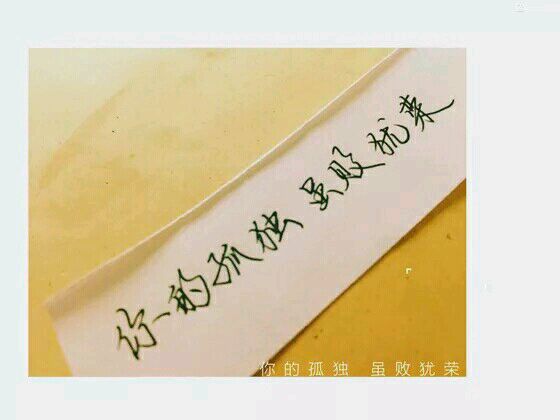 你的孤独 虽败犹荣
你的孤独 虽败犹荣